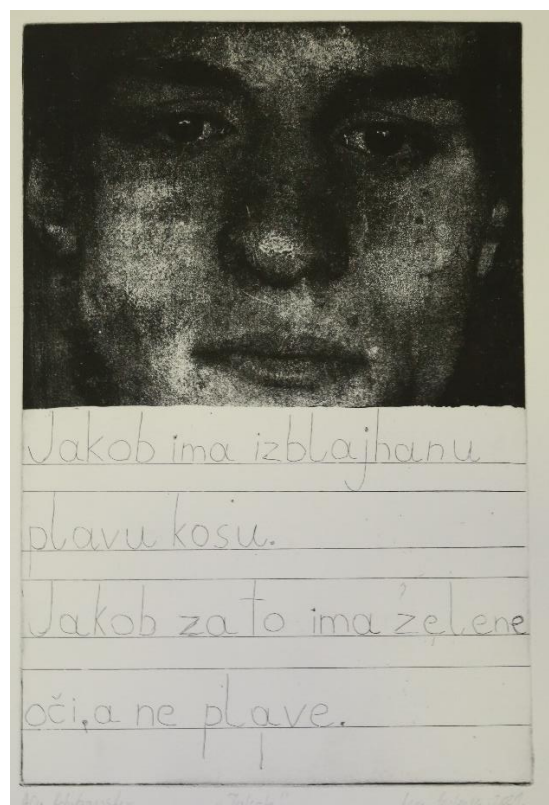 Jakob ima izblajhanu
plavu kosu.
Jakob za to ima zelene
oči, a ne plave.
"Jakob"